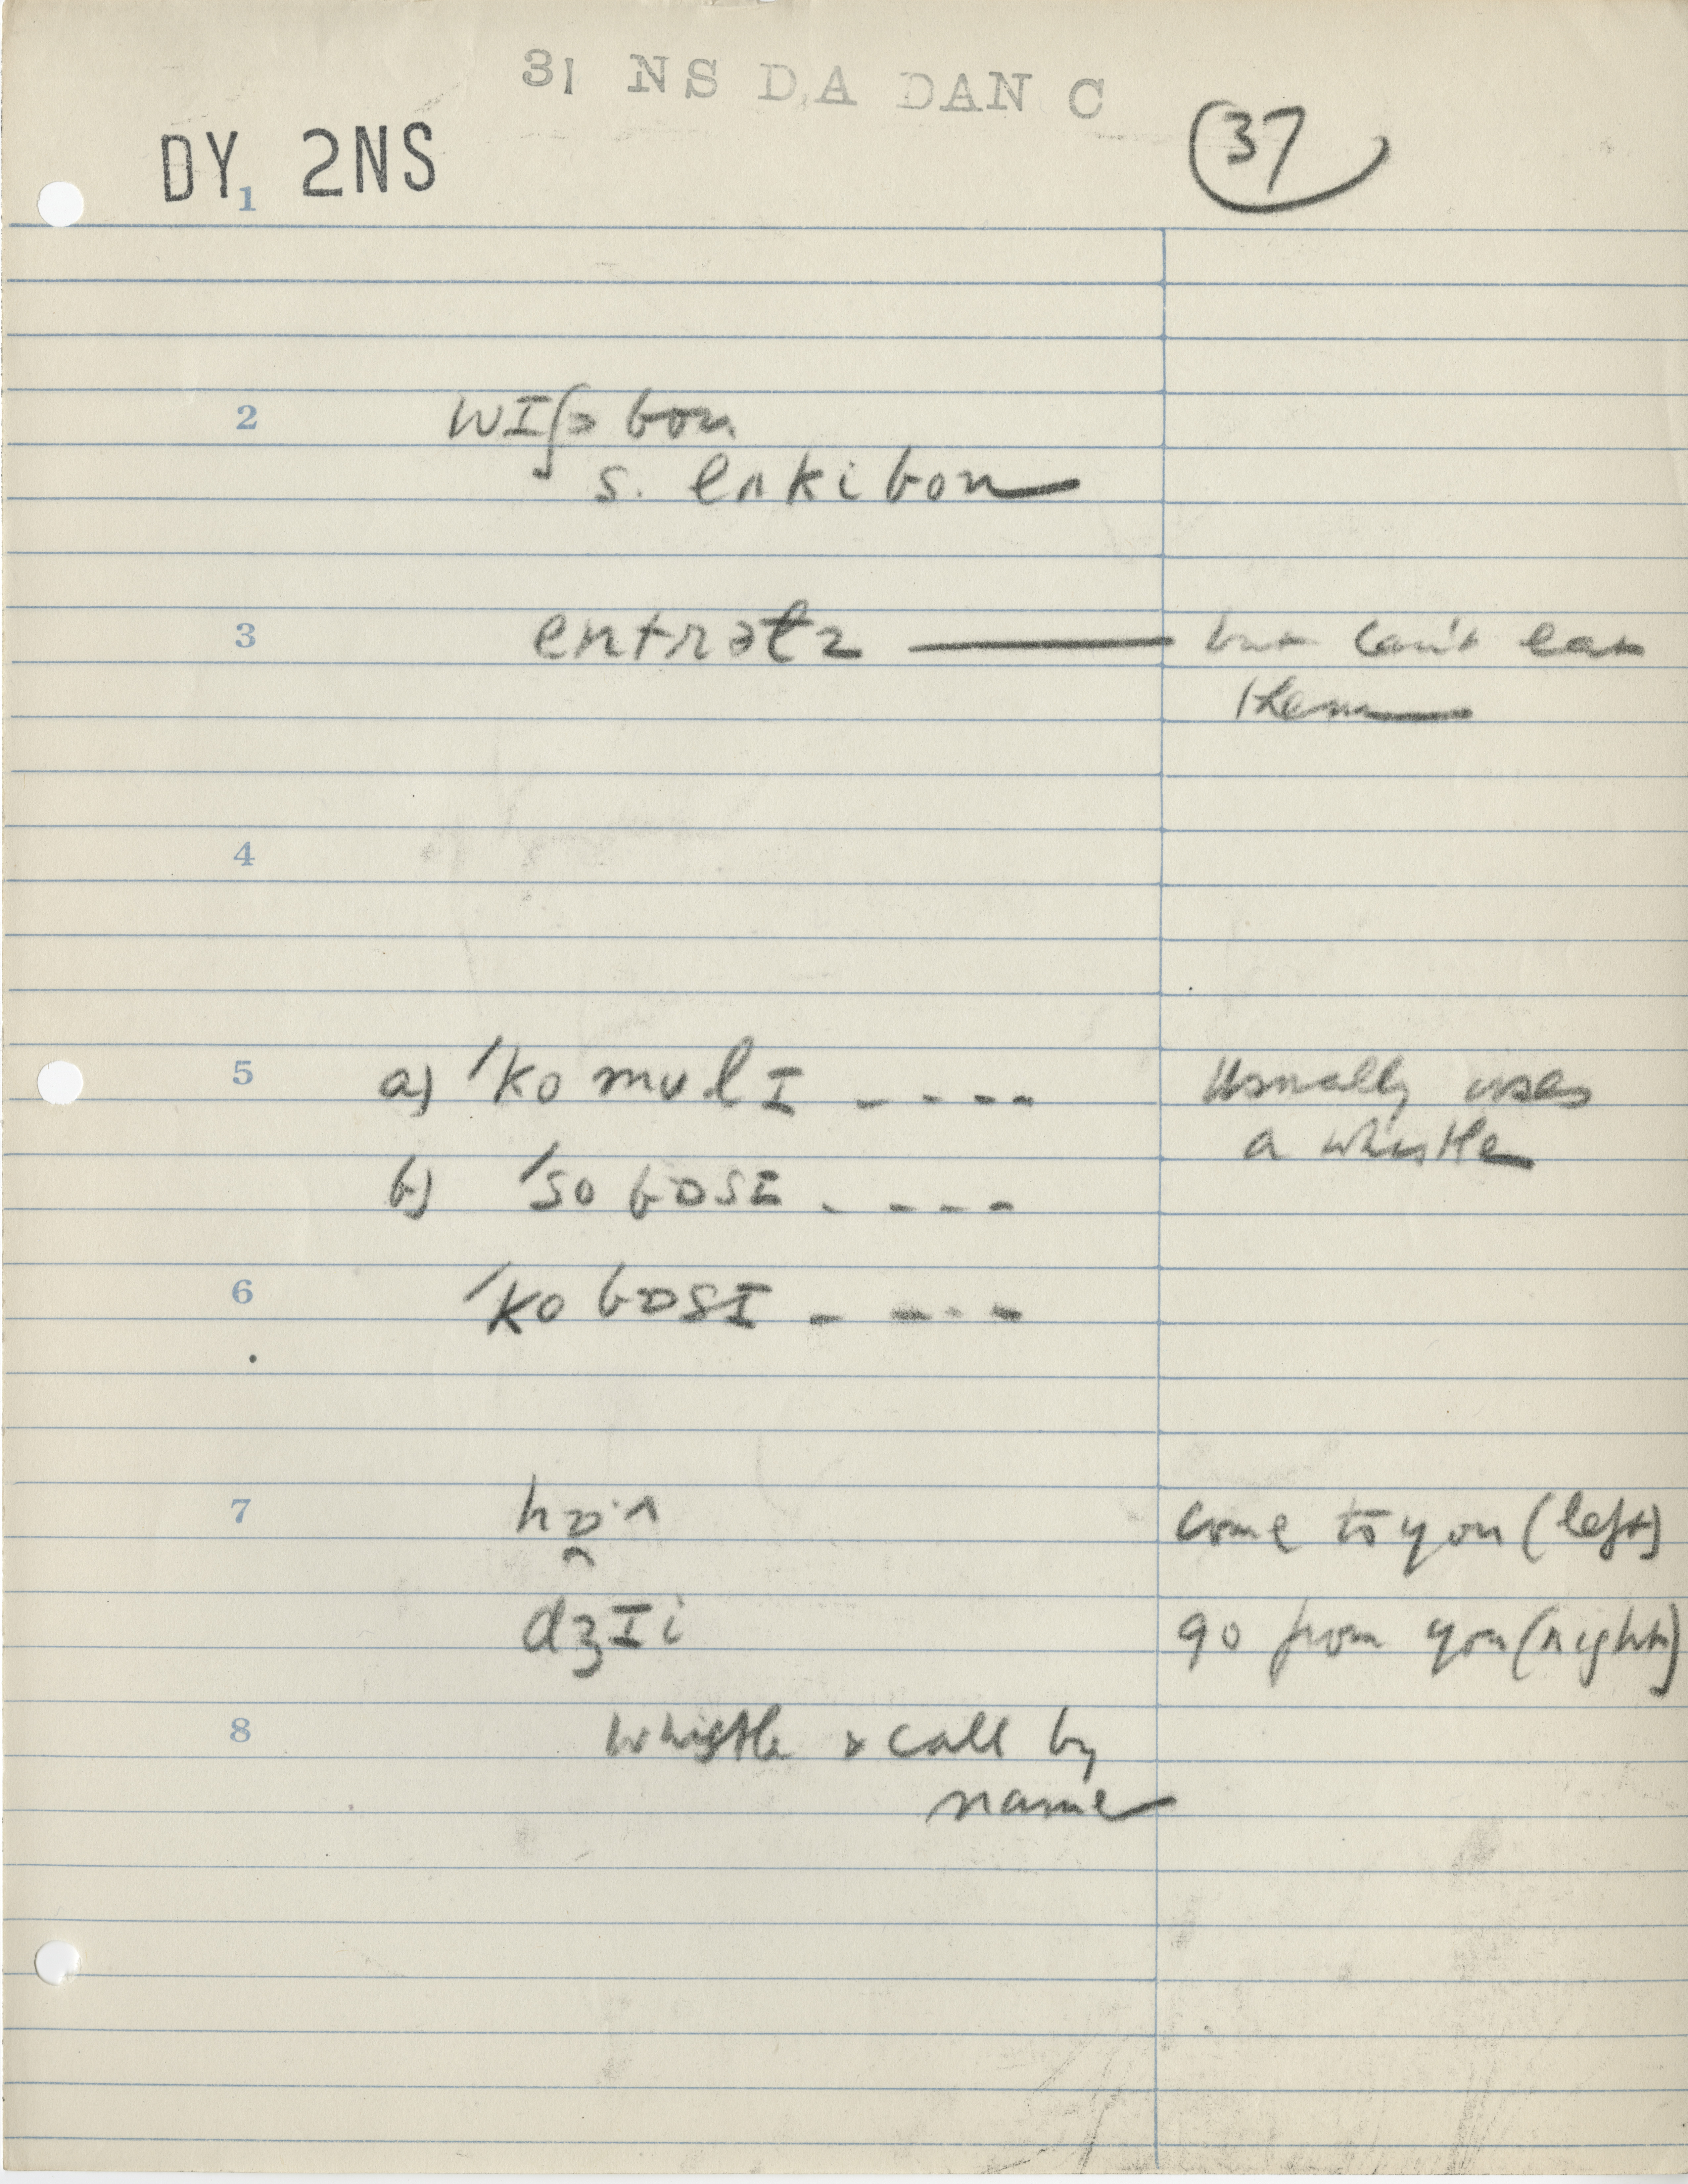 31 NS DA DAN C
DY 2NS
37
1
2 wɪʃ bon
s. enkibon
3 entratz but can't eat
them
4
5 a) 'ko mulɪ - - - - Usually uses
a whistle
b) 'so bɒsɪ - - - -
6 'ko bɒsɪ - - - -
7 come to you (left)
dʒɪi go from you (right)
8 whistle & call by
name